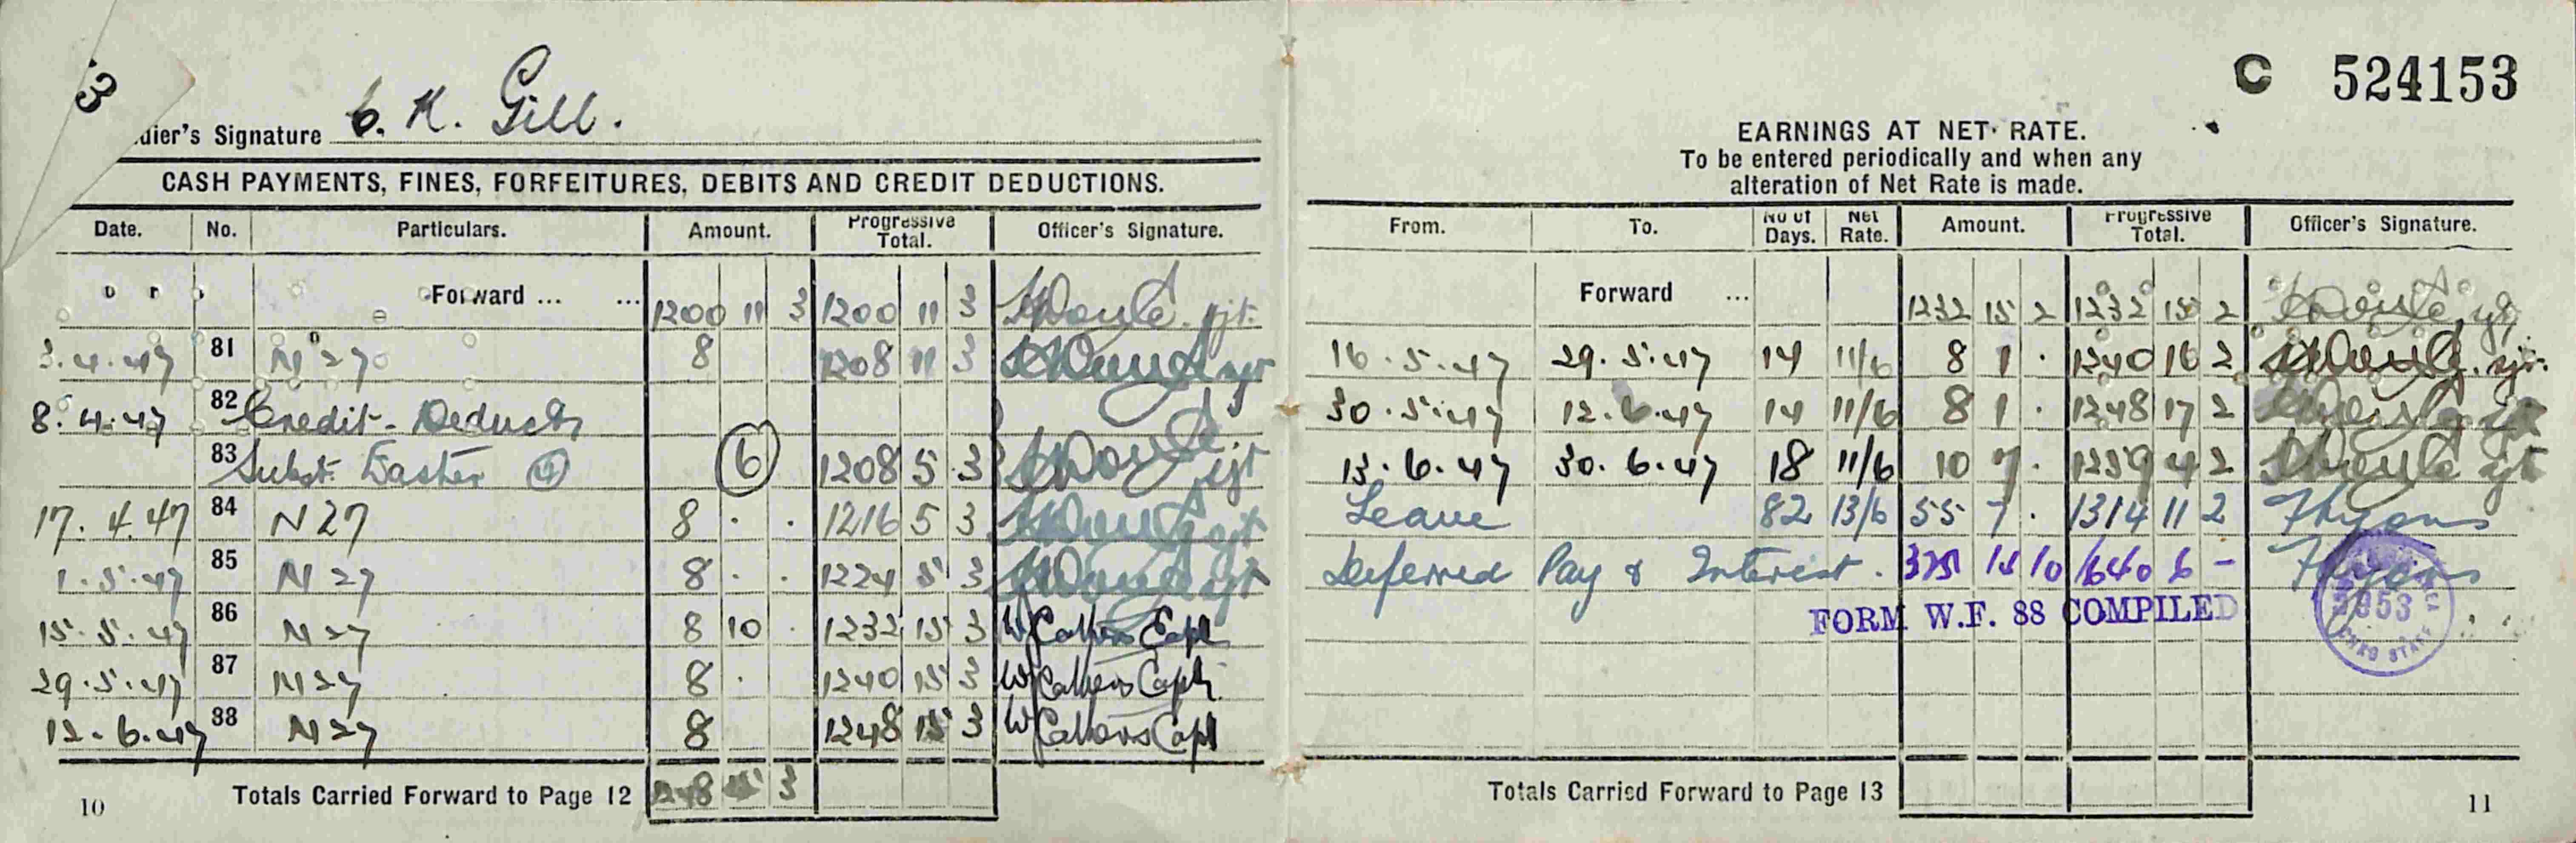 3
C 524153
dier's Signature C. K. Gill.
CASH PAYMENTS, FINES, FORFEITURES, DEBITS AND CREDIT DEDUCTIONS.
Date. No. Particulars. Amount. Progressive Total. Officer's Signature.
Forward ... ... 1200 11 3 1200 11 3
3.4.47 81 N 27 8 1208 11 3
8.4.47 82 Credit - Deducts
83 Subst. Easter (4) (6) 1208 5 3
17.4.47 84 N 27 8 . . 1216 5 3
1.5.47 85 N 27 8 . . 1224 5 3
15.5.47 86 N 27 8 10 . 1232 15 3 Capt
29.5.47 87 N 27 8 . 1240 15 3 Capt
12.6.47 88 N 27 8 1248 15 3 Capt
Totals Carried Forward to Page 12 1248 15 3
10
EARNINGS AT NET RATE.
To be entered periodically and when any
alteration of Net Rate is made.
From. To. No of Days. Net Rate. Amount. Progressive Total. Officer's Signature.
Forward ... 1232 15 2 1232 15 2
16.5.47 29.5.47 14 11/6 8 1 . 1240 16 2
30.5.47 12.6.47 14 11/6 8 1 . 1248 17 2
13.6.47 30.6.47 18 11/6 10 7 . 1259 4 2
Leave 82 13/6 55 7 . 1314 11 2
Deferred Pay & Interest. 325 14 10 1640 6 -
FORM W.F. 88 COMPILED
5953
Totals Carried Forward to Page 13
11